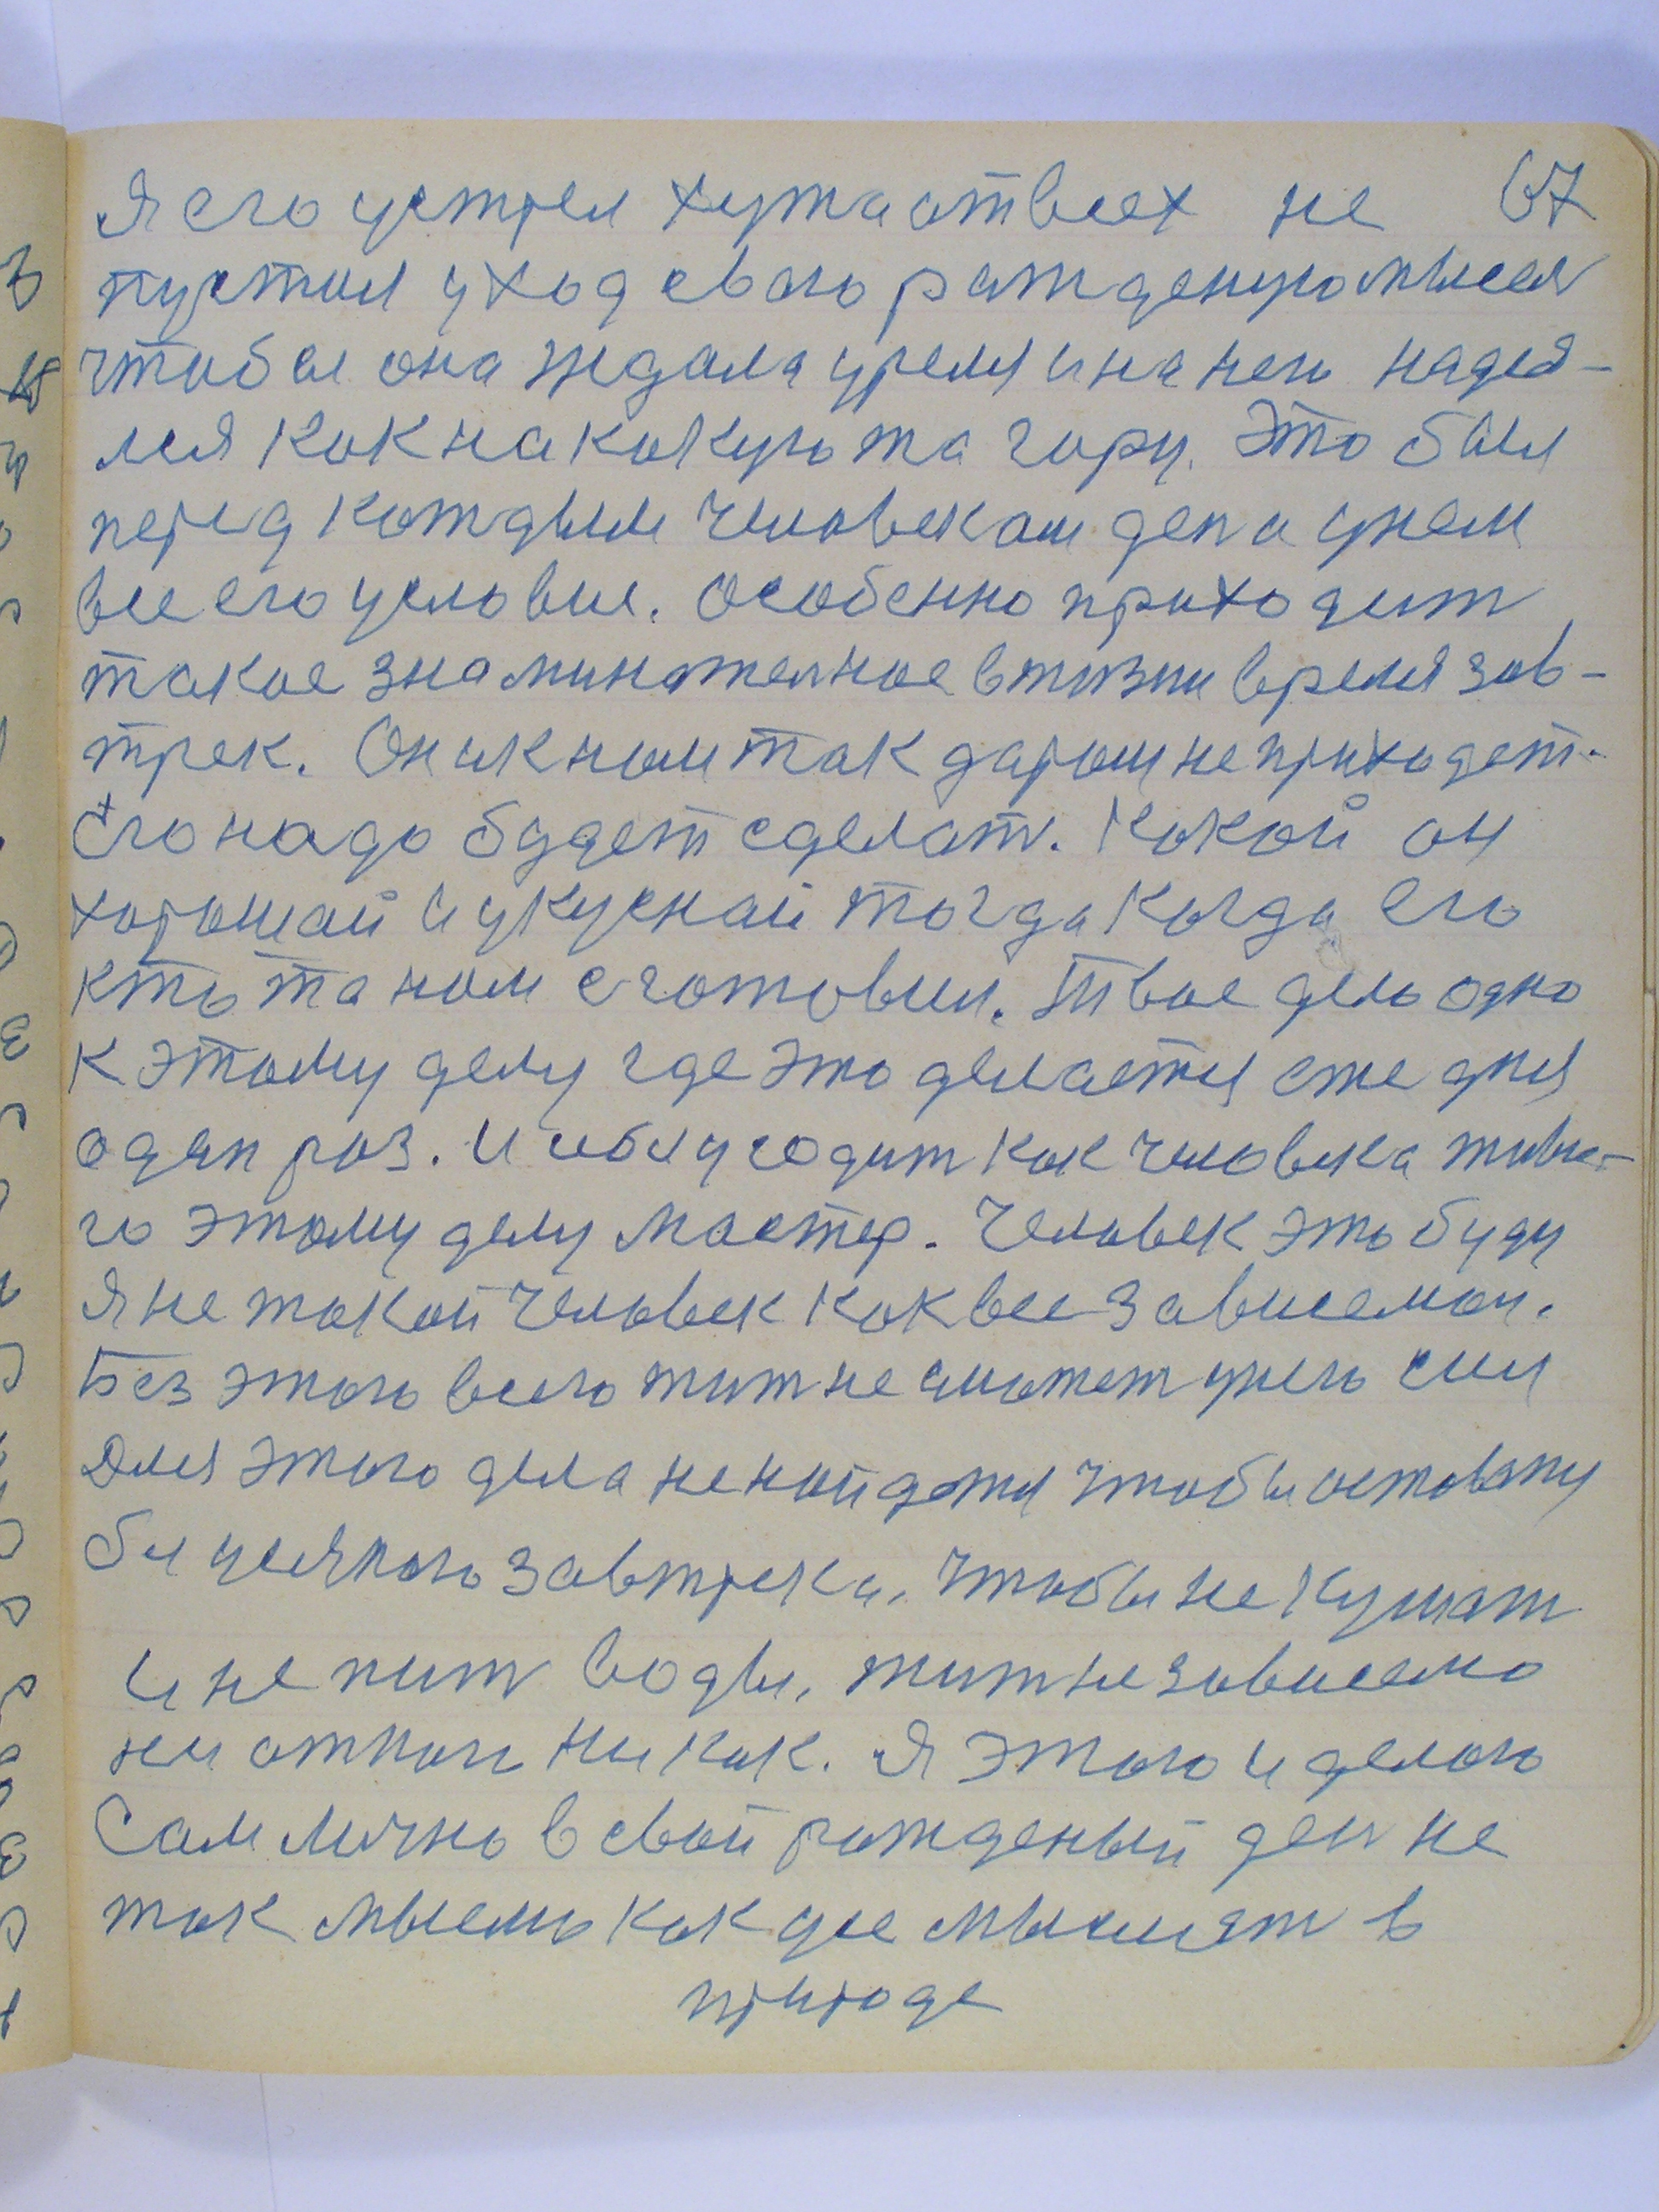 Я его устрел хужа от всех не 67
пустил уход свою рожденую мысля
чтобы она ждала уремя и на него надея-
лся как на какую та гору. Это был
перед каждым человекам ден а у нем
все его условие. Особенно приходит
такое знаминательное в жизни время зав-
трек. Он и к нам так даром не приходет.
Его надо будет сделать. Какой он
хорошай и укуснай тогда когда его
кто та нам сготовил. Твое дело одно
к этому делу где это делается еже дня
один раз. И ... как человека живо-
го этому делу мастер. Человек это буду
я не такой человек как все зависемаи.
Без этого всего жит не сможет у него сил
для этого дела не найдется чтобы ...
бы усякого завтрека, чтобы не кушат
и не пит воды, жит независемо
ни от кого никак. Я этого и делаю
сам лично в свой рожденый ден не
так мыслю как усе мыслят в
природе